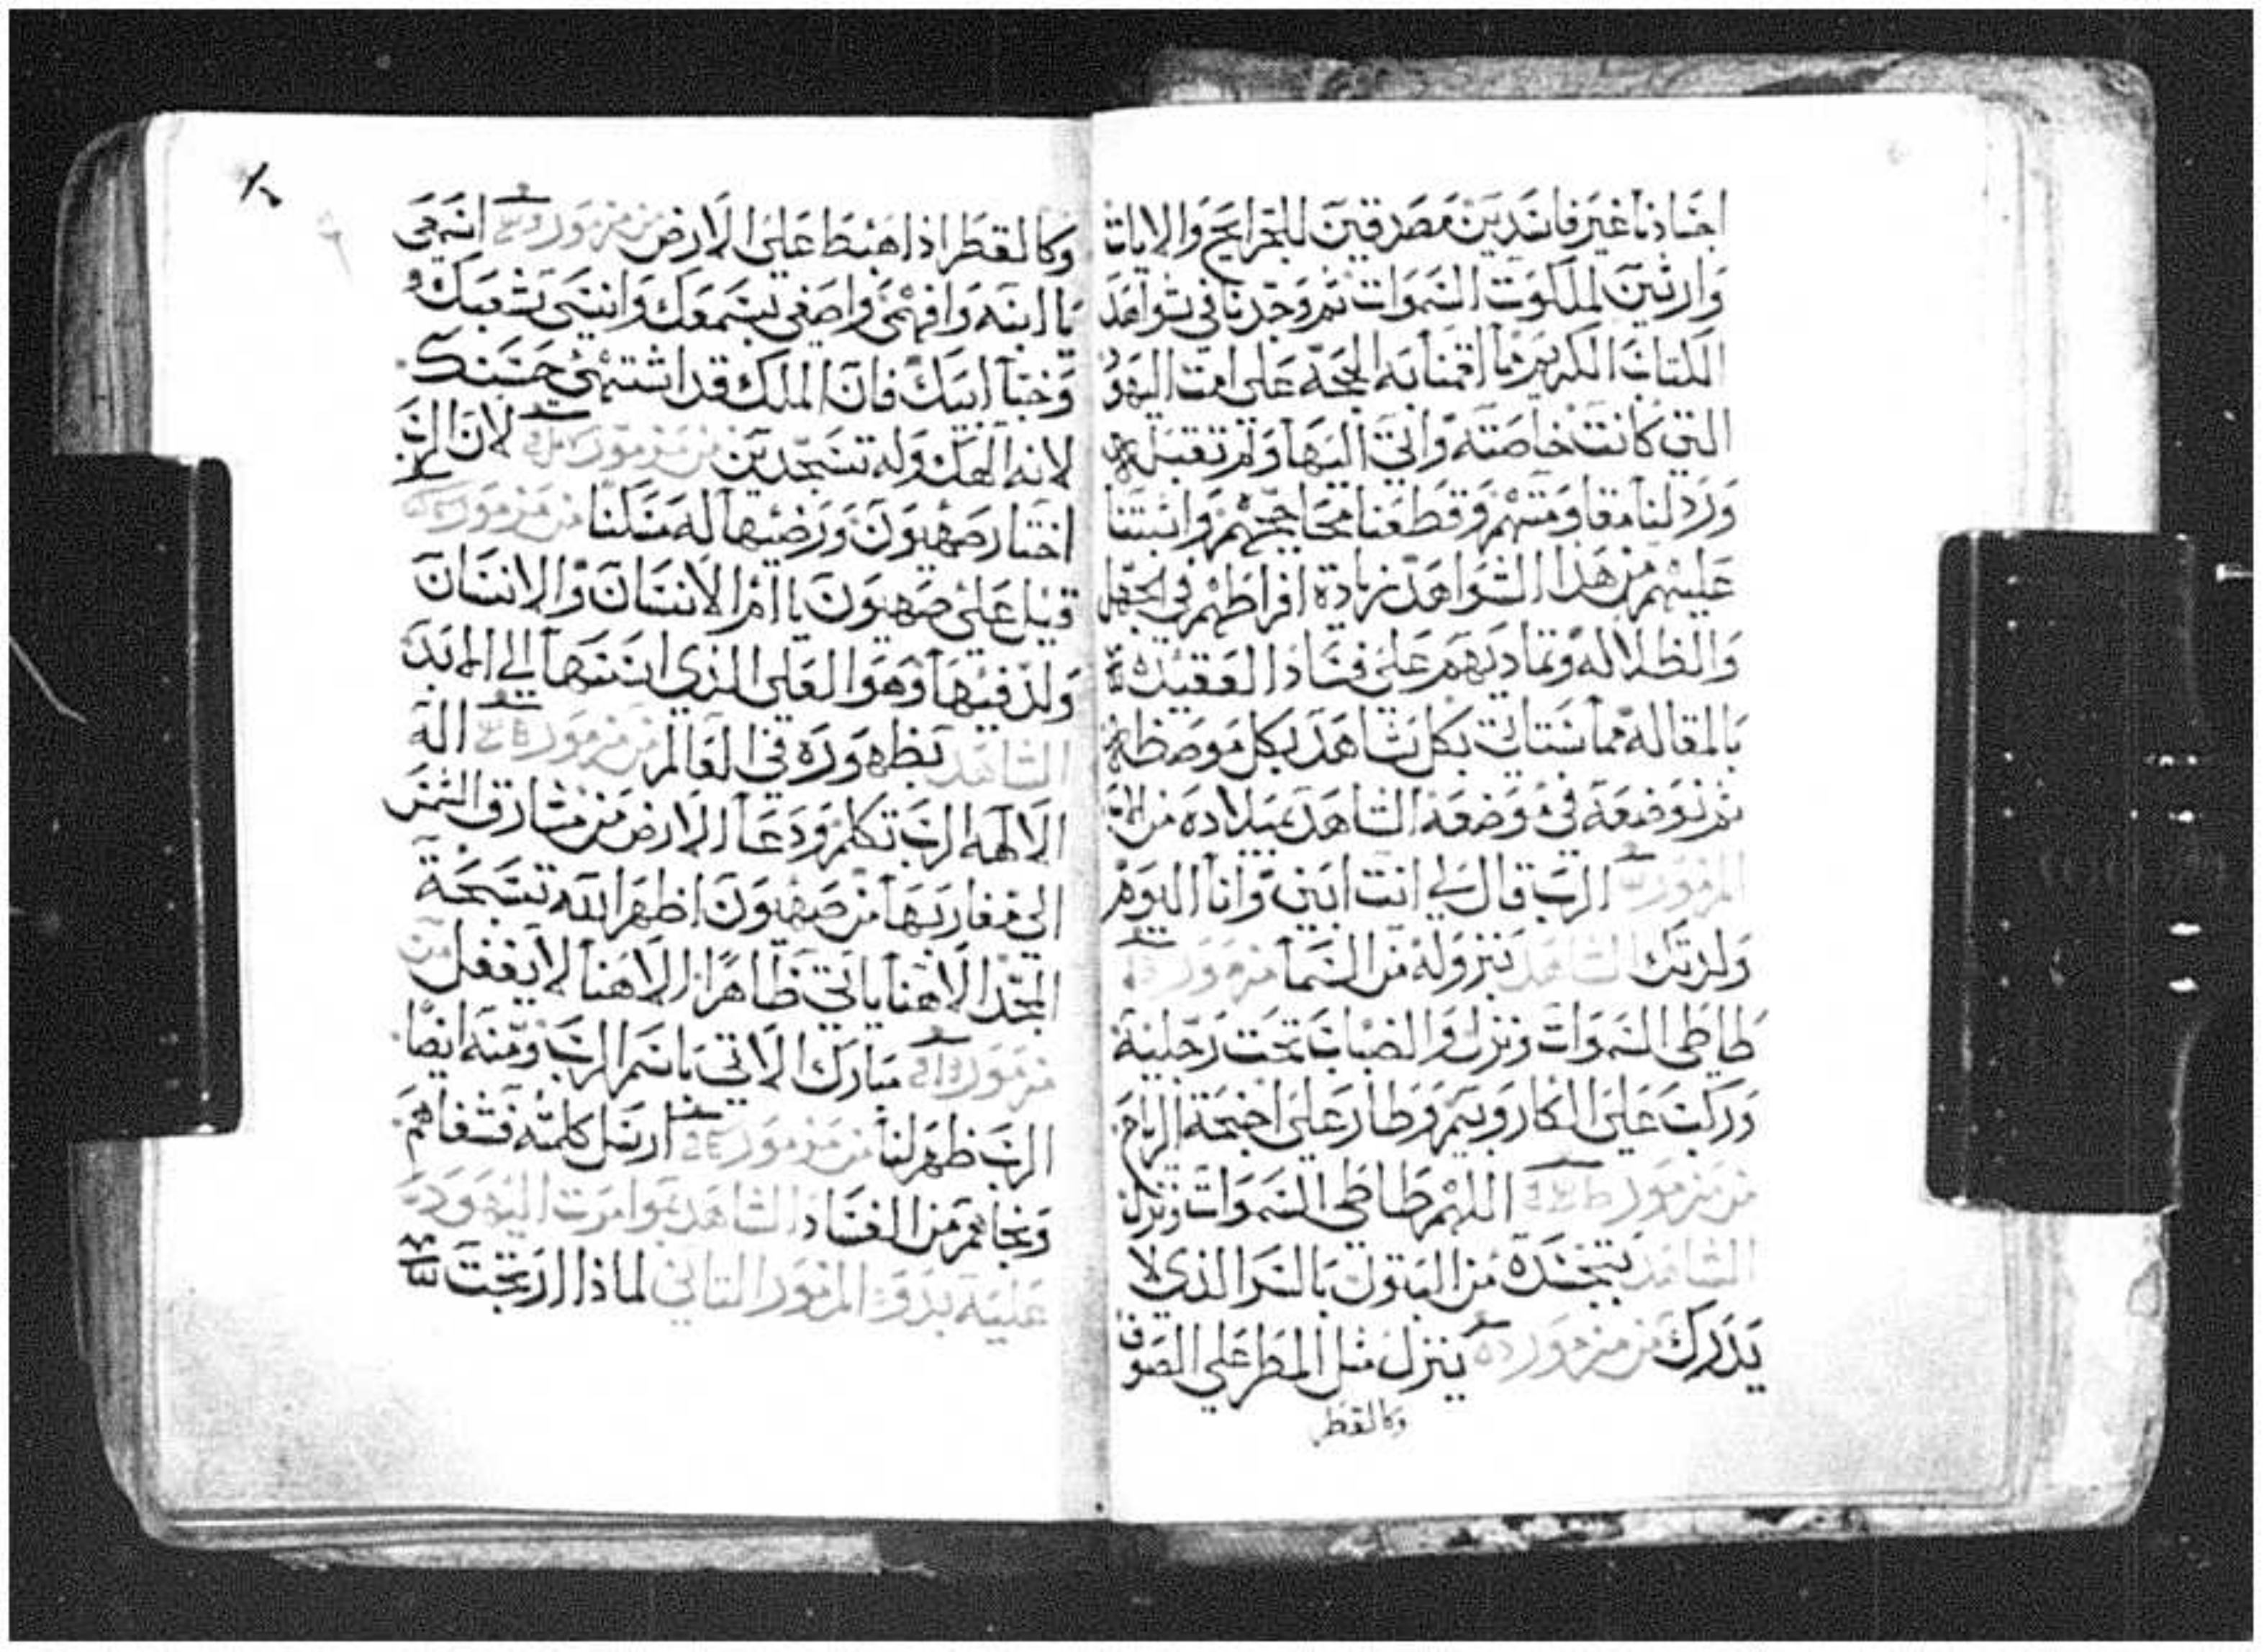 اجنادنا غير فاندين مصدقين للجرايح والايات
وارثين لملكوت السموات ثم وجدنا في شواهد
الكتاب الكريم ما اقمنا به الحجة على امت اليهود
التي كانت خاصته واتي اليها ولم تقبله
ورد لنا مقاومتهم وقطعنا محاججتهم واتبتنا
عليهم من هذا الشواهد زيادة افراطهم في الجهل
والظلاله وتماديهم على فساد العقيده
بالمقاله مما سناتي بكل شاهد بكل موضظه
ثم نوضعه في موضعه الشاهد بميلاده من الاب
المزمور ب الرب قال لي انت ابني وانا اليوم
ولدتك الشاهد بنزوله من السما مزمور
طاطي السموات ونزل والضباب تحت رجليه
وركب على الكاروبيم وطار على اجنحة الرياح
من مزمور اللهم طاطي السموات ونزل
الشاهد بتجسده من البتول بالسر الذي لا
يدرك من مزمور ينزل مثل المطر على الصوف
وكالقطر
وكالقطر اذا هبط على الارض من مزمور اسمعي
يا ابنه وافهمي واصغي بسمعك وانسي شعبك و
وخبا ابيك فان الملك قد اشتهي حسنك
لانه الهك وله تسجدين من مزمور لان الرب
اختار صهيون ورضيها له مسكنا من مزمور
قيل على صهيون يا ام الانسان والانسان
ولد فيها وهو العلى الذي اسسها الي الابد
الشاهد بظهوره في العالم من مزمور اله
الالهه الرب تكلم ودعا الارض من مشارق الشمس
الي مغاربها من صهيون اظهر الله تسبحة
المجد الاهنا ياتي ظاهرا الاهنا لا يغفل من
مزمور مبارك الاتي باسم الرب ومنه ايضا
الرب ظهر لنا من مزمور ارسل كلمته فشفاهم
ونجاهم من الفساد الشاهد بموامرت اليهود
عليه بدو المزمور الثاني لماذا ارتجت